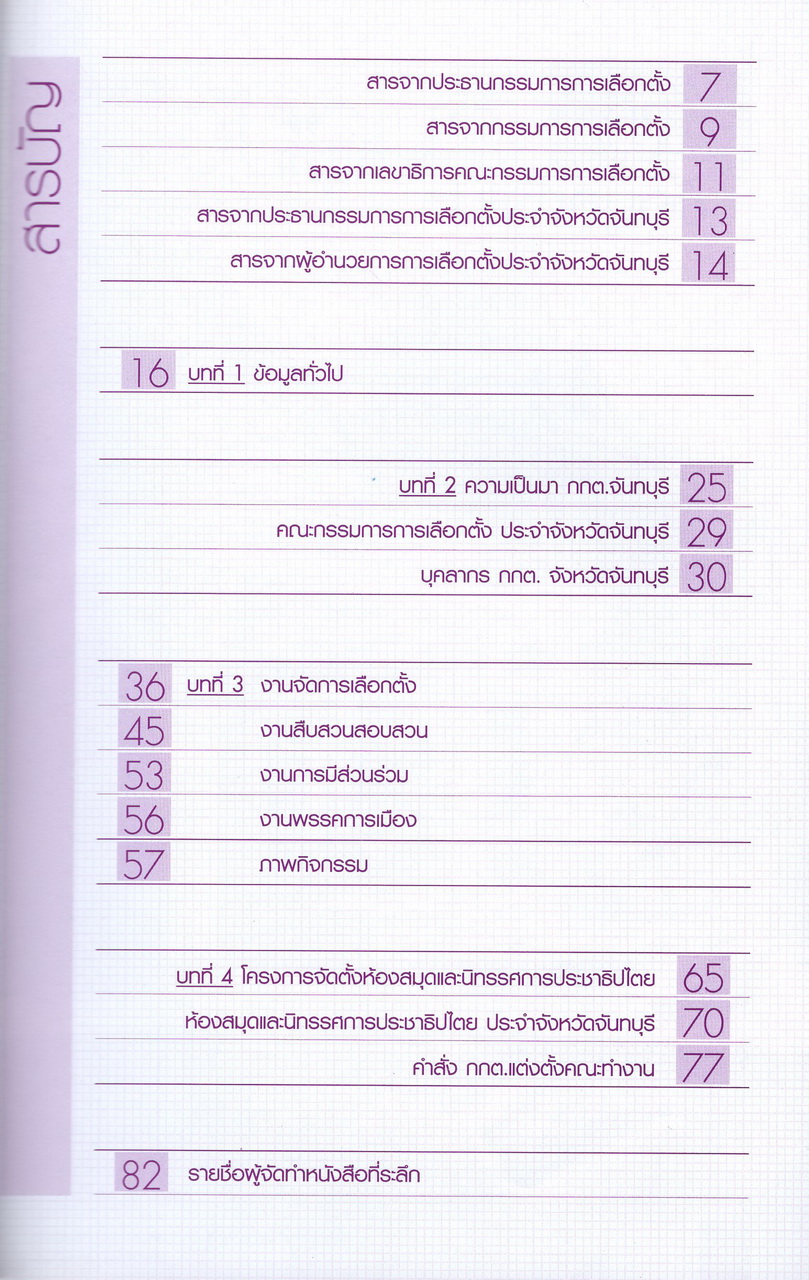 สารบัญ
สารจากประธานกรรมการการเลือกตั้ง 7
สารจากกรรมการการเลือกตั้ง 9
สารจากเลขาธิการคณะกรรมการการเลือกตั้ง 11
สารจากประธานกรรมการการเลือกตั้งประจำจังหวัดจันทบุรี 13
สารจากผู้อำนวยการการเลือกตั้งประจำจังหวัดจันทบุรี 14
16 บทที่ 1 ข้อมูลทั่วไป
บทที่ 2 ความเป็นมา กกต.จันทบุรี 25
คณะกรรมการการเลือกตั้ง ประจำจังหวัดจันทบุรี 29
บุคลากร กกต. จังหวัดจันทบุรี 30
36 บทที่ 3 งานจัดการเลือกตั้ง
45 งานสืบสวนสอบสวน
53 งานการมีส่วนร่วม
56 งานพรรคการเมือง
57 ภาพกิจกรรม
บทที่ 4 โครงการจัดตั้งห้องสมุดและนิทรรศการประชาธิปไตย 65
ห้องสมุดและนิทรรศการประชาธิปไตย ประจำจังหวัดจันทบุรี 70
คำสั่ง กกต.แต่งตั้งคณะทำงาน 77
82 รายชื่อผู้จัดทำหนังสือที่ระลึก